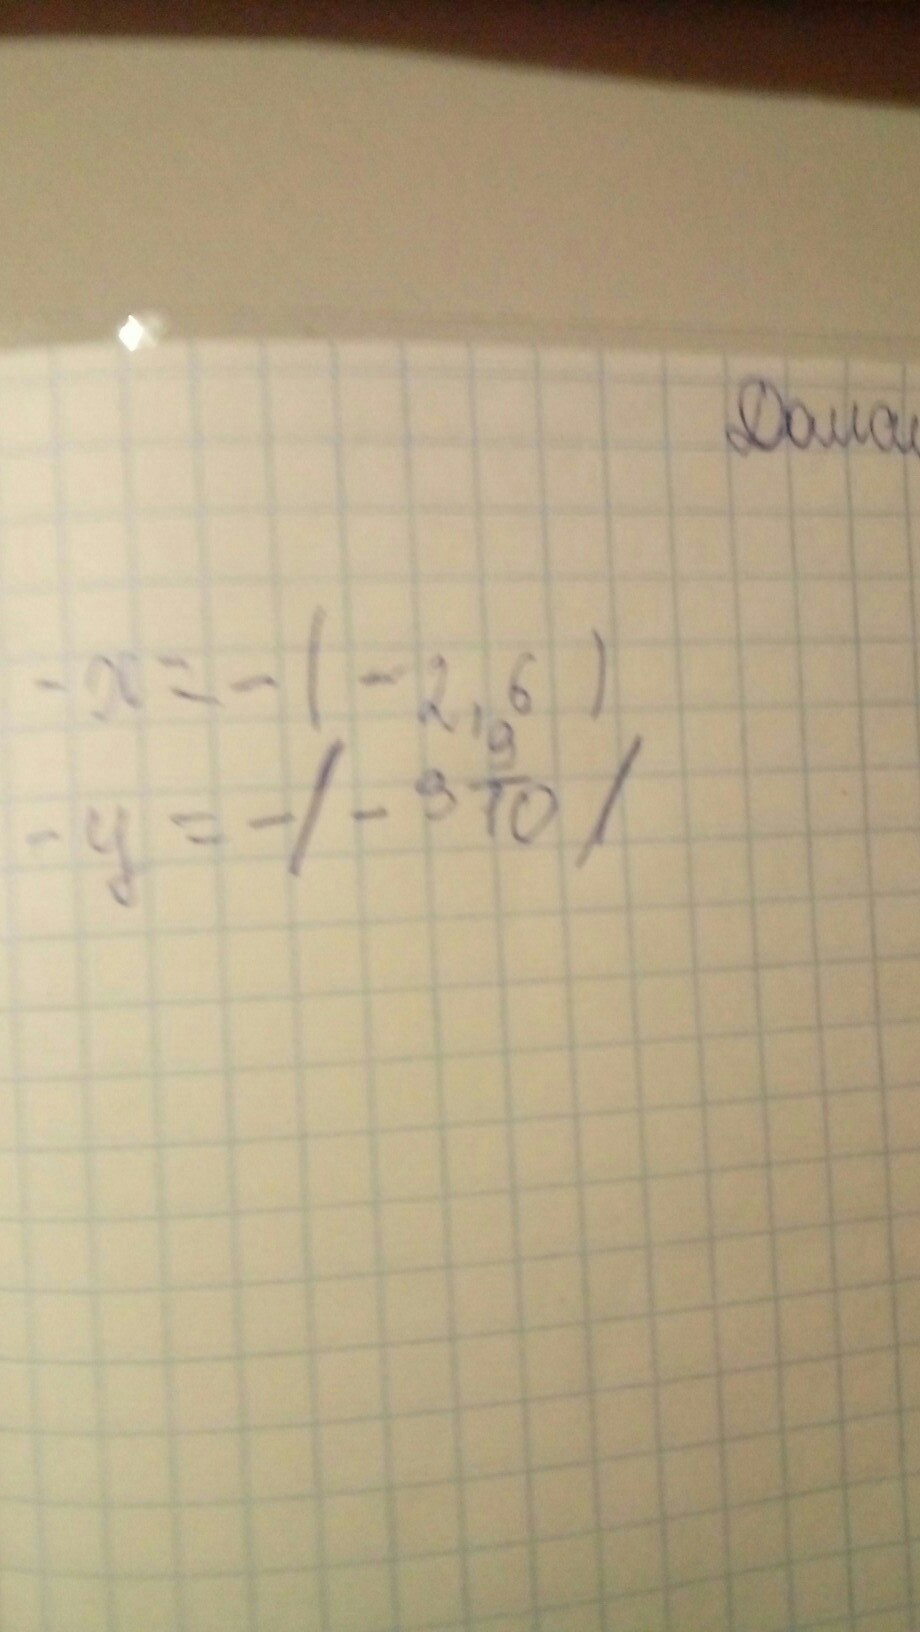 Домаш
-x = -(-2,6)
-y = -/-3 9/10/